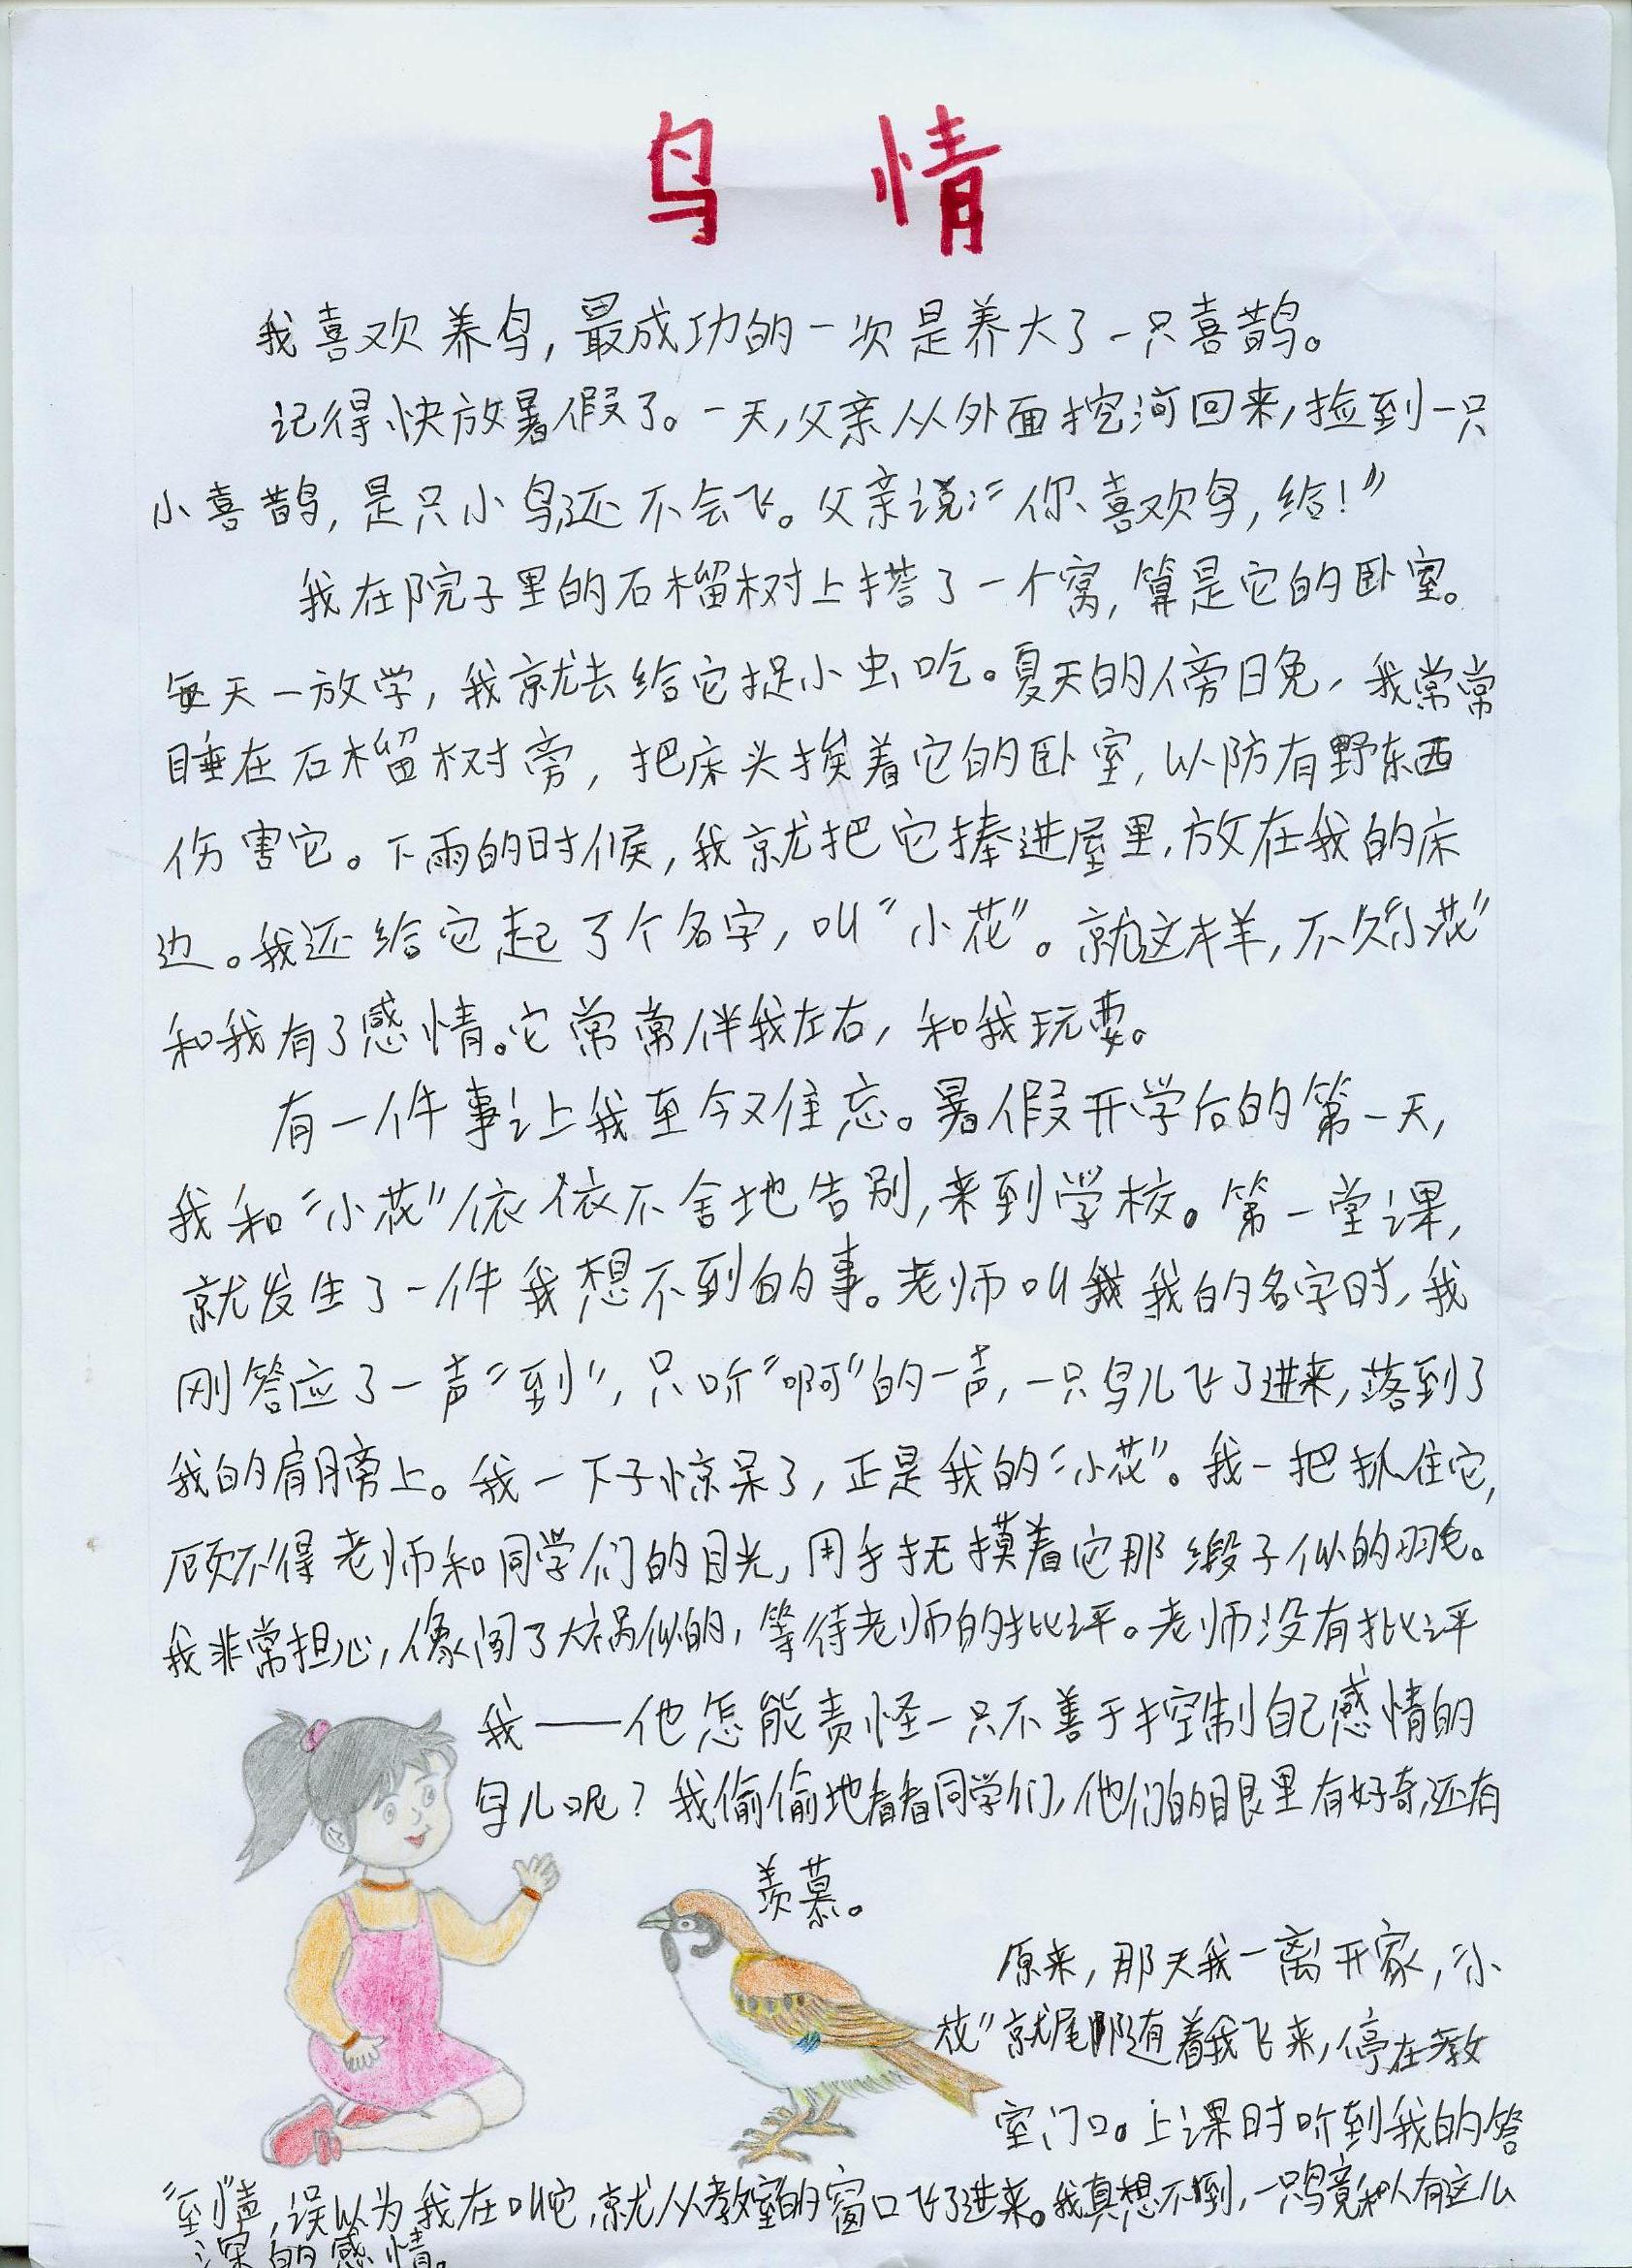 鸟 情
我喜欢养鸟，最成功的一次是养大了一只喜鹊。
记得快放暑假了。一天，父亲从外面挖河回来，捡到一只
小喜鹊，是只小鸟，还不会飞。父亲说：“你喜欢鸟，给！”
我在院子里的石榴树上搭了一个窝，算是它的卧室。
每天一放学，我就去给它捉小虫吃。夏天的傍晚，我常常
睡在石榴树旁，把床头挨着它的卧室，以防有野东西
伤害它。下雨的时候，我就把它捧进屋里，放在我的床
边。我还给它起了个名字，叫“小花”。就这样，不久“小花”
和我有了感情。它常常伴我左右，和我玩耍。
有一件事让我至今难忘。暑假开学后的第一天，
我和“小花”依依不舍地告别，来到学校。第一堂课，
就发生了一件我想不到的事。老师叫我我的名字时，我
刚答应了一声“到”，只听“啊”的一声，一只鸟儿飞了进来，落到了
我的肩膀上。我一下子惊呆了，正是我的“小花”。我一把抓住它，
顾不得老师和同学们的目光，用手抚摸着它那缎子似的羽毛。
我非常担心，像闯了大祸似的，等待老师的批评。老师没有批评
我——他怎能责怪一只不善于控制自己感情的
鸟儿呢？我偷偷地看看同学们，他们的眼里有好奇，还有
羡慕。
原来，那天我一离开家，“小
花”就尾随着我飞来，停在教
室门口。上课时听到我的答
“到”声，误以为我在叫它，就从教室的窗口飞了进来。我真想不到，一只鸟竟和人有这么
深的感情。